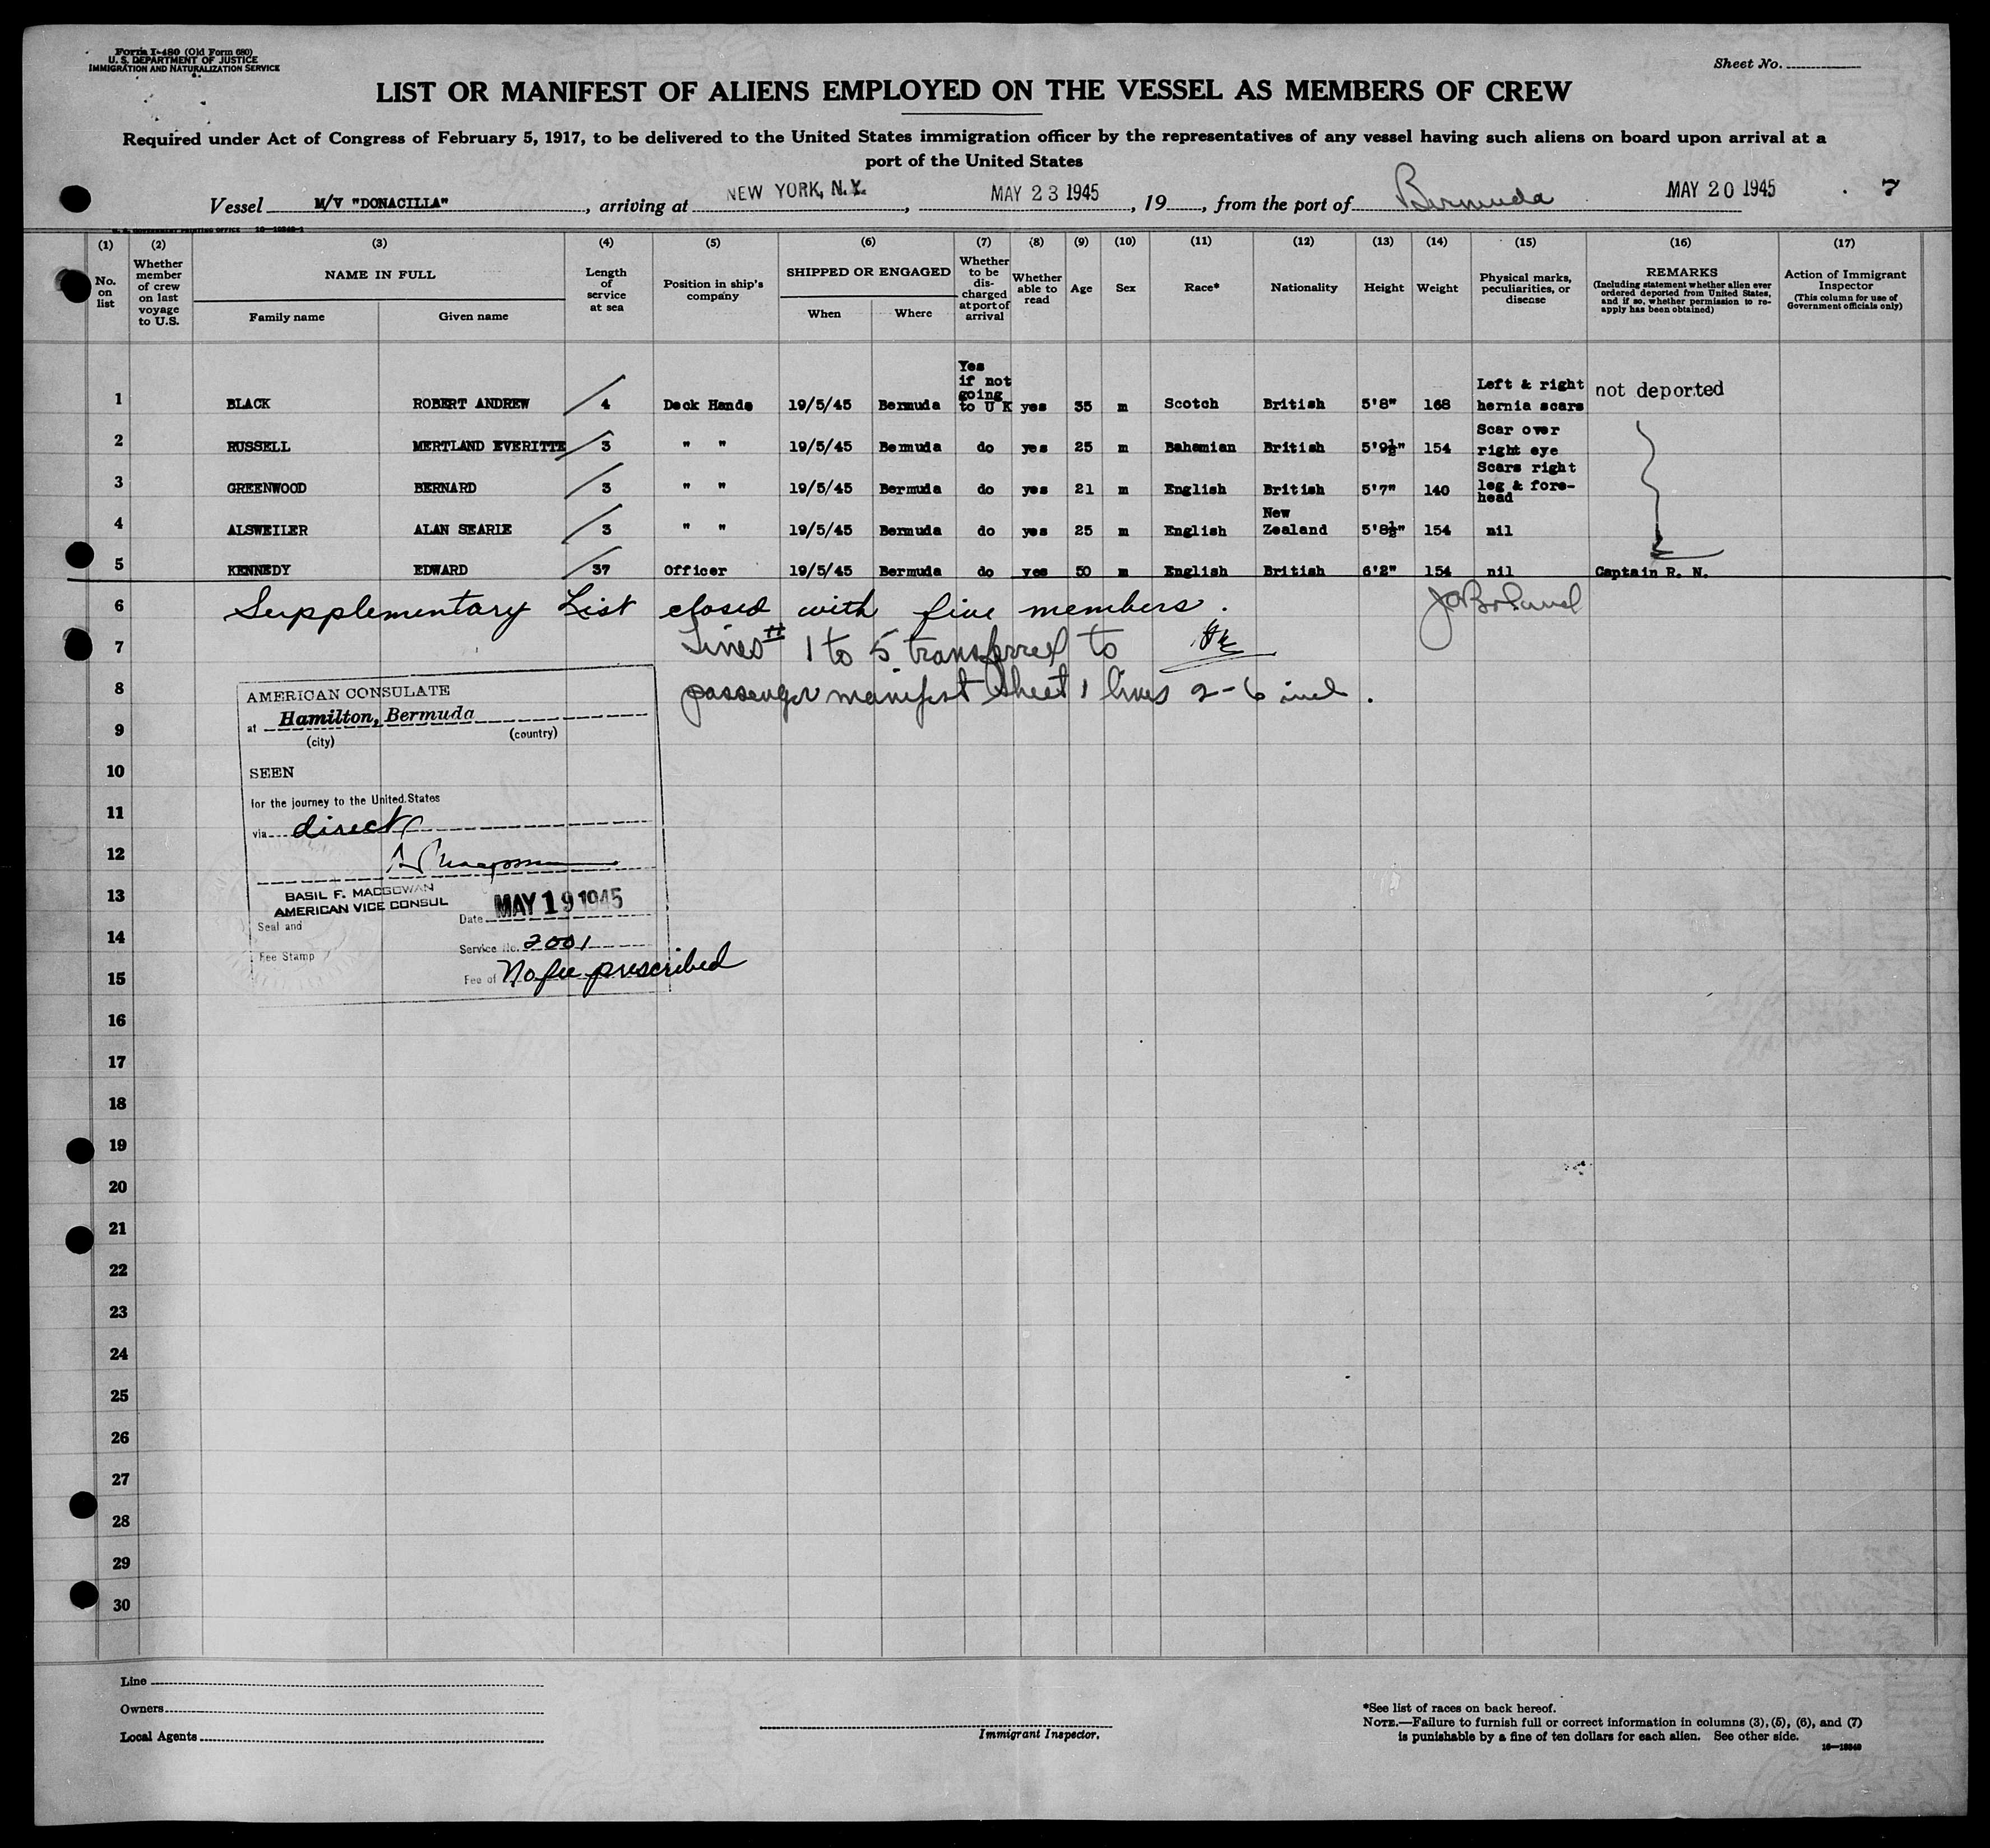 Form I-480 (Old Form 680)
U. S. DEPARTMENT OF JUSTICE
IMMIGRATION AND NATURALIZATION SERVICE
Sheet No.
LIST OR MANIFEST OF ALIENS EMPLOYED ON THE VESSEL AS MEMBERS OF CREW
Required under Act of Congress of February 5, 1917, to be delivered to the United States immigration officer by the representatives of any vessel having such aliens on board upon arrival at a
port of the United States
Vessel M/V "DONACILLA", arriving at NEW YORK, N.Y., MAY 23 1945, 19, from the port of Bermuda MAY 20 1945 7
U. S. GOVERNMENT PRINTING OFFICE 16—10349-1
(1) (2) (3) (4) (5) (6) (7) (8) (9) (10) (11) (12) (13) (14) (15) (16) (17)
No. on list
Whether member of crew on last voyage to U.S.
NAME IN FULL
Family name
Given name
Length of service at sea
Position in ship's company
SHIPPED OR ENGAGED
When
Where
Whether to be discharged at port of arrival
Whether able to read
Age
Sex
Race*
Nationality
Height
Weight
Physical marks, peculiarities, or disease
REMARKS
(Including statement whether alien ever ordered deported from United States, and if so, whether permission to re-apply has been obtained)
Action of Immigrant Inspector
(This column for use of Government officials only)
1 BLACK ROBERT ANDREW 4 Deck Hands 19/5/45 Bermuda Yes if not going to U K yes 35 m Scotch British 5'8" 168 Left & right hernia scars not deported
2 RUSSELL MERTLAND EVERITTE 3 " " 19/5/45 Bermuda do yes 25 m Bahamian British 5'9½" 154 Scar over right eye
3 GREENWOOD BERNARD 3 " " 19/5/45 Bermuda do yes 21 m English British 5'7" 140 Scars right leg & fore-head
4 ALSWEILER ALAN SEARLE 3 " " 19/5/45 Bermuda do yes 25 m English New Zealand 5'8½" 154 nil
5 KENNEDY EDWARD 37 Officer 19/5/45 Bermuda do yes 50 m English British 6'2" 154 nil Captain R. N.
6 Supplementary List closed with five members.
7 Lines 1 to 5 transferred to
8 passenger manifest sheet 1 lines 2-6 incl.
AMERICAN CONSULATE
at Hamilton, Bermuda
(city) (country)
9
10
SEEN
for the journey to the United States
11
via direct
12
BASIL F. MACGOWAN
13
AMERICAN VICE CONSUL
Date MAY 19 1945
Seal and
14
Service No. 2001
Fee Stamp
15
Fee of No fee prescribed
16
17
18
19
20
21
22
23
24
25
26
27
28
29
30
Line
Owners
Local Agents
Immigrant Inspector.
*See list of races on back hereof.
NOTE.—Failure to furnish full or correct information in columns (3), (5), (6), and (7)
is punishable by a fine of ten dollars for each alien. See other side.
16—10349